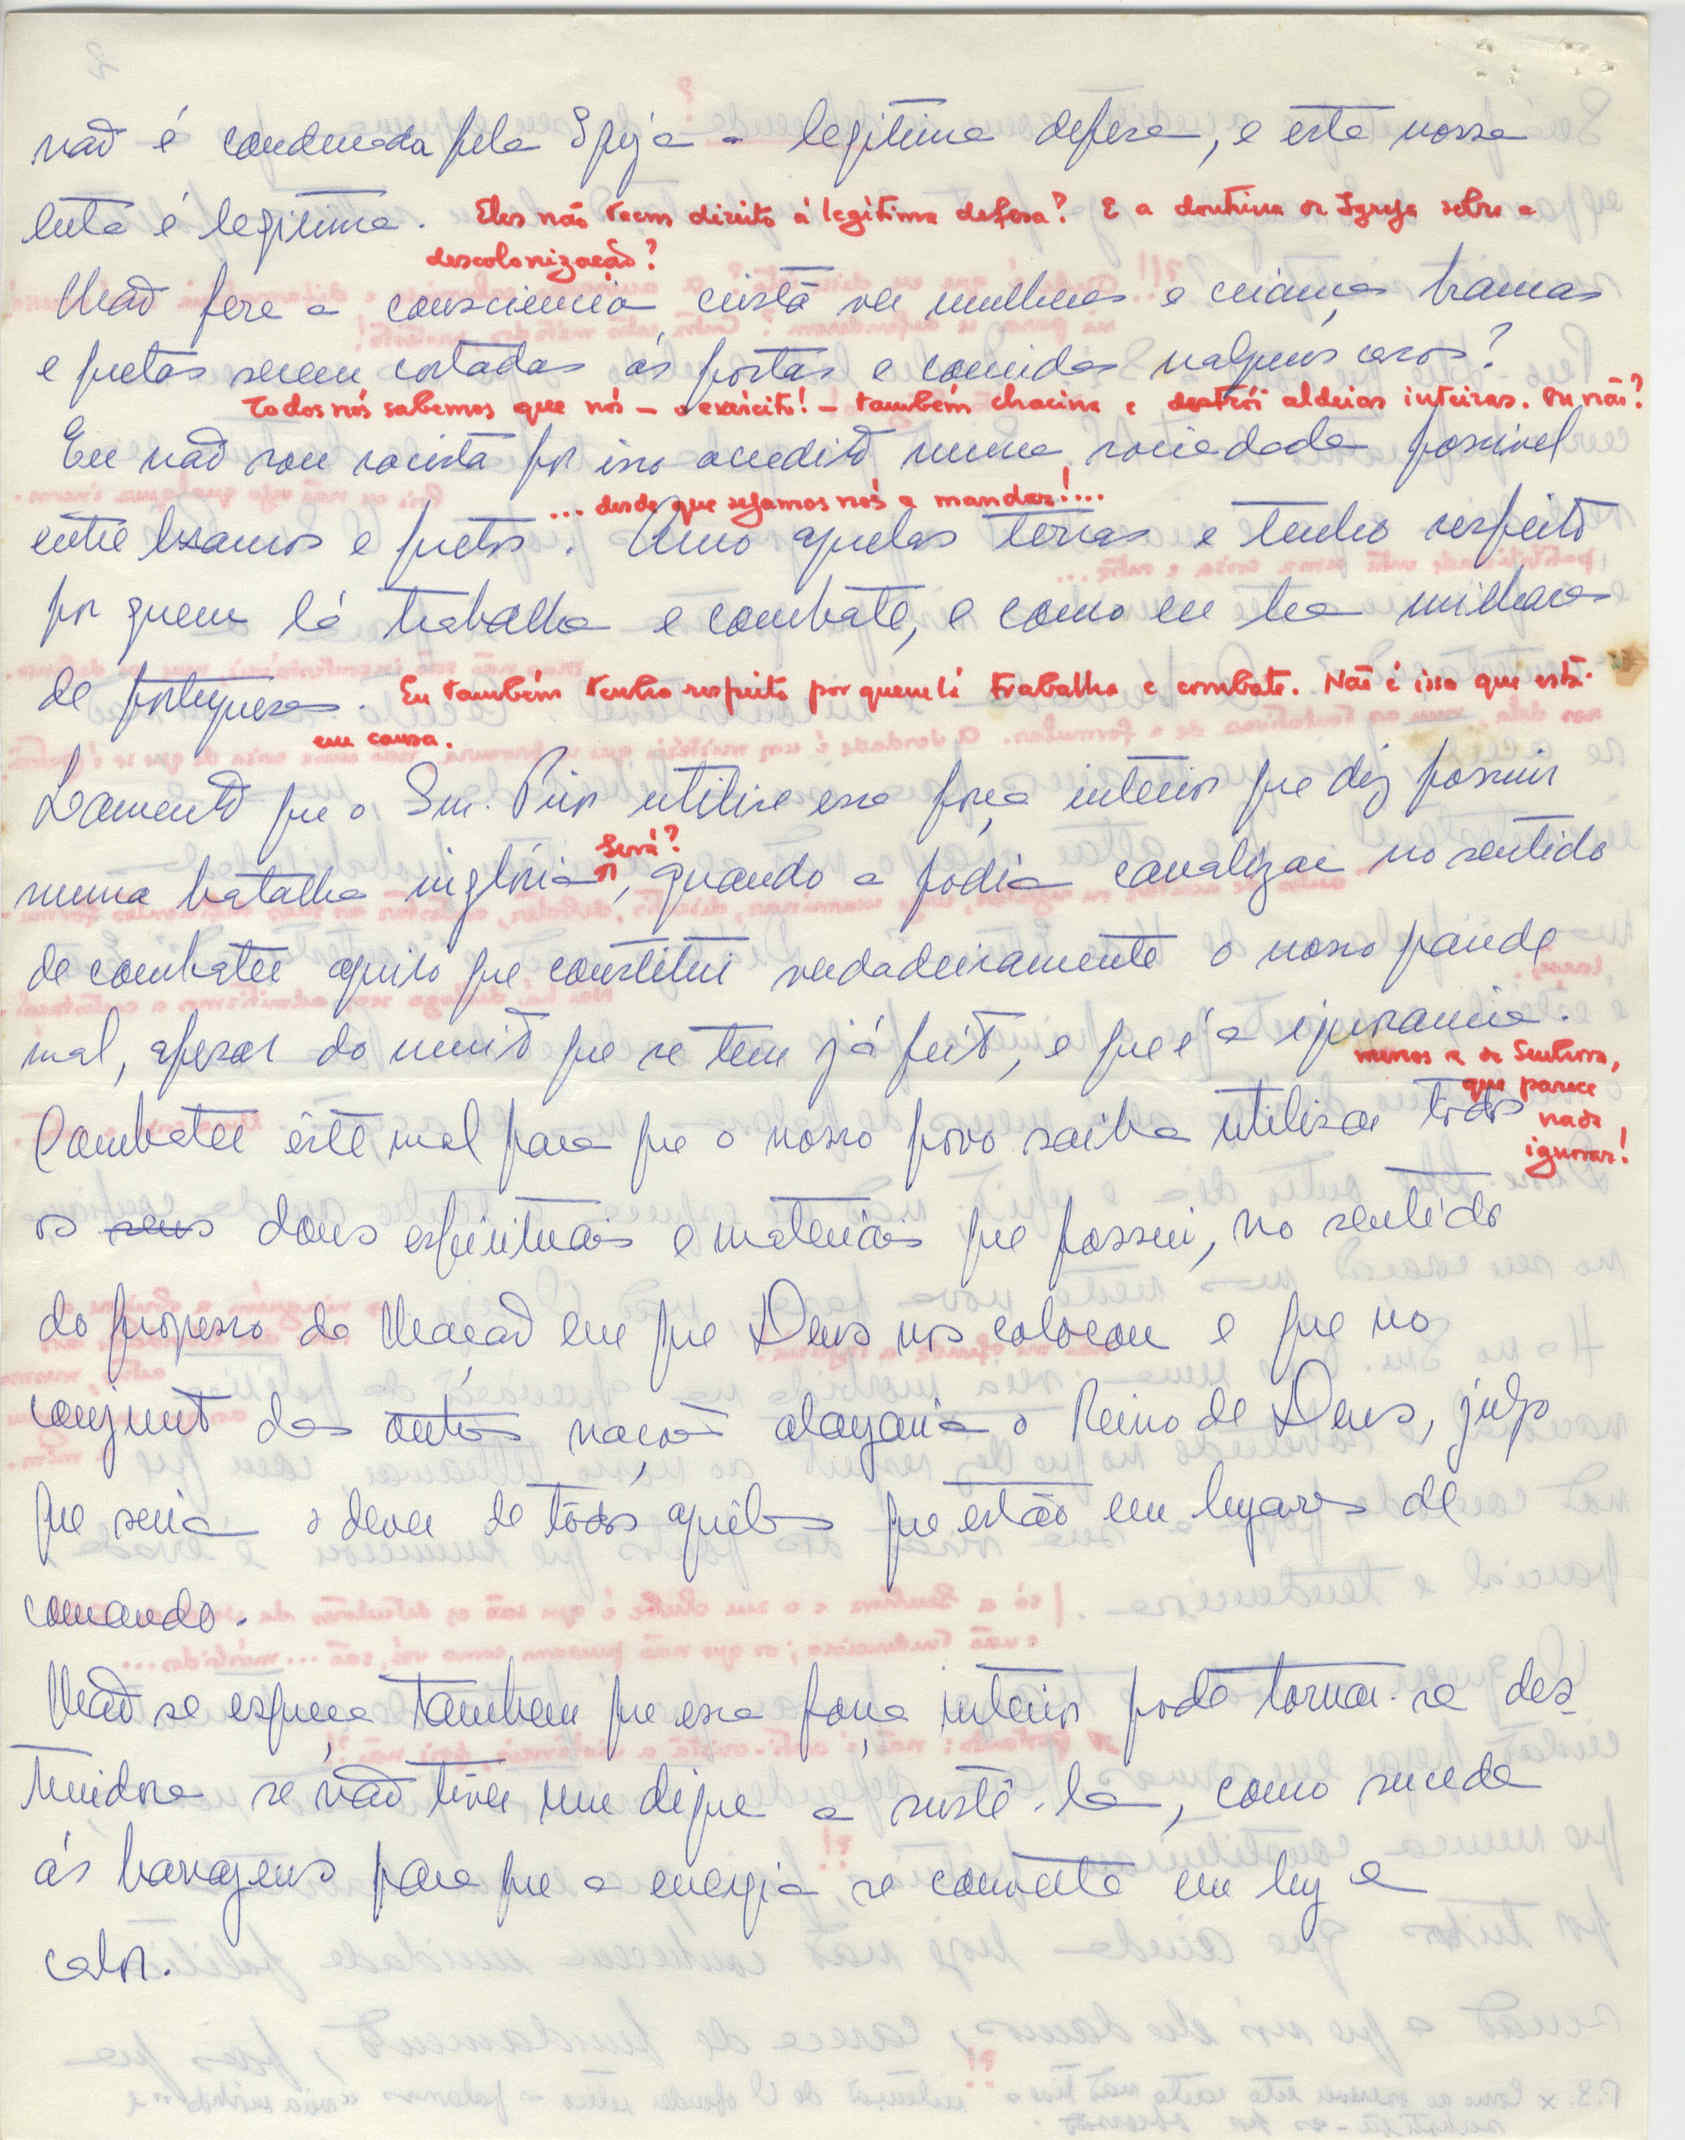 não é condenada pela Igreja a legitima defesa, e esta nossa
luta é legitima. Eles não teem direito á legítima defesa? E a doutrina da Igreja sobre a
descolonização?
Não fere a consciencia cristã ver mulheres e crianças brancas
e pretas serem cortadas ás postas e comidas nalguns casos?
Todos nós sabemos que nós – o exército! – também chacina e destrói aldeias inteiras. Ou não?
Eu não sou racista por isso acredito numa sociedade possivel
... desde que sejamos nós a mandar!...
entre brancos e pretos. Amo aquelas terras e tenho respeito
por quem lá trabalha e combate, e como eu ha milhares
de portugueses. Eu também tenho respeito por quem lá trabalha e combate. Não é isso que está
em causa.
Lamento que o Snr. Prior utilise essa força interior que diz possuir
Será?
numa batalha inglória, quando a podia canalizar no sentido
de combater aquilo que constitui verdadeiramente o nosso grande
mal, apesar do muito que se tem já feito, e que é a ignorancia.
menos a da Senhora,
que parece
nada
ignorar!
Combater êste mal para que o nosso povo saiba utilizar todos
os seus dons espirituais e materiais que possui, no sentido
do progresso da Nação em que Deus nos colocou e que no
conjunto das outras nações alargaria o Reino de Deus, julgo
que seria o dever de todos aquêles que estão em lugares de
comando.
Não se esqueça tambem que essa força interior pode tornar-se des-
truidora se não tiver um dique a sustê-la, como sucede
ás barragens para que a energia se converta em luz e
calor.